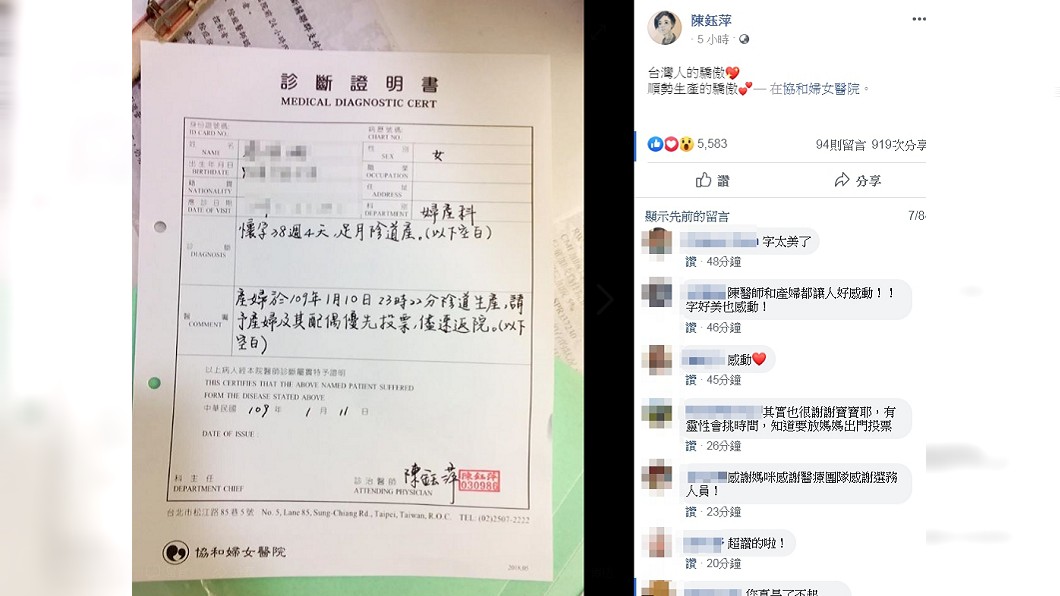 診斷證明書
MEDICAL DIAGNOSTIC CERT
身份證號碼
ID CARD NO.
病歷號碼
CHART NO.
姓名
NAME
性別
SEX
女
出生年月日
BIRTHDATE
職業
OCCUPATION
籍貫
NATIONALITY
住址
ADDRESS
應診日期
DATE OF VISIT
科別
DEPARTMENT
婦產科
診斷
DIAGNOSIS
懷孕38週4天,足月陰道產。(以下空白)
醫囑
COMMENT
產婦於109年1月10日23時22分陰道生產,請
予產婦及其配偶優先投票,儘速返院。(以下
空白)
以上病人經本院醫師診斷屬實特予證明
THIS CERTIFIES THAT THE ABOVE NAMED PATIENT SUFFERED
FORM THE DISEASE STATED ABOVE
中華民國 109 年 1 月 11 日
DATE OF ISSUE :
科主任
DEPARTMENT CHIEF
診治醫師
ATTENDING PHYSICIAN
陳鈺萍
陳鈺萍
030986
台北市松江路85巷5號 No. 5, Lane 85, Sung-Chiang Rd., Taipei, Taiwan, R.O.C. TEL: (02)2507-2222
協和婦女醫院
陳鈺萍
5 小時
台灣人的驕傲💖
順勢生產的驕傲💕— 在協和婦女醫院。
5,583
94則留言 919次分享
讚
分享
顯示先前的留言
7/8
字太美了
讚 · 48分鐘
陳醫師和產婦都讓人好感動!!
字好美也感動!
讚 · 46分鐘
感動❤️
讚 · 45分鐘
其實也很謝謝寶寶耶,有
靈性會挑時間,知道要放媽媽出門投票
讚 · 26分鐘
感謝媽咪感謝醫療團隊感謝選務
人員!
讚 · 23分鐘
超讚的啦!
讚 · 20分鐘
你真是了不起